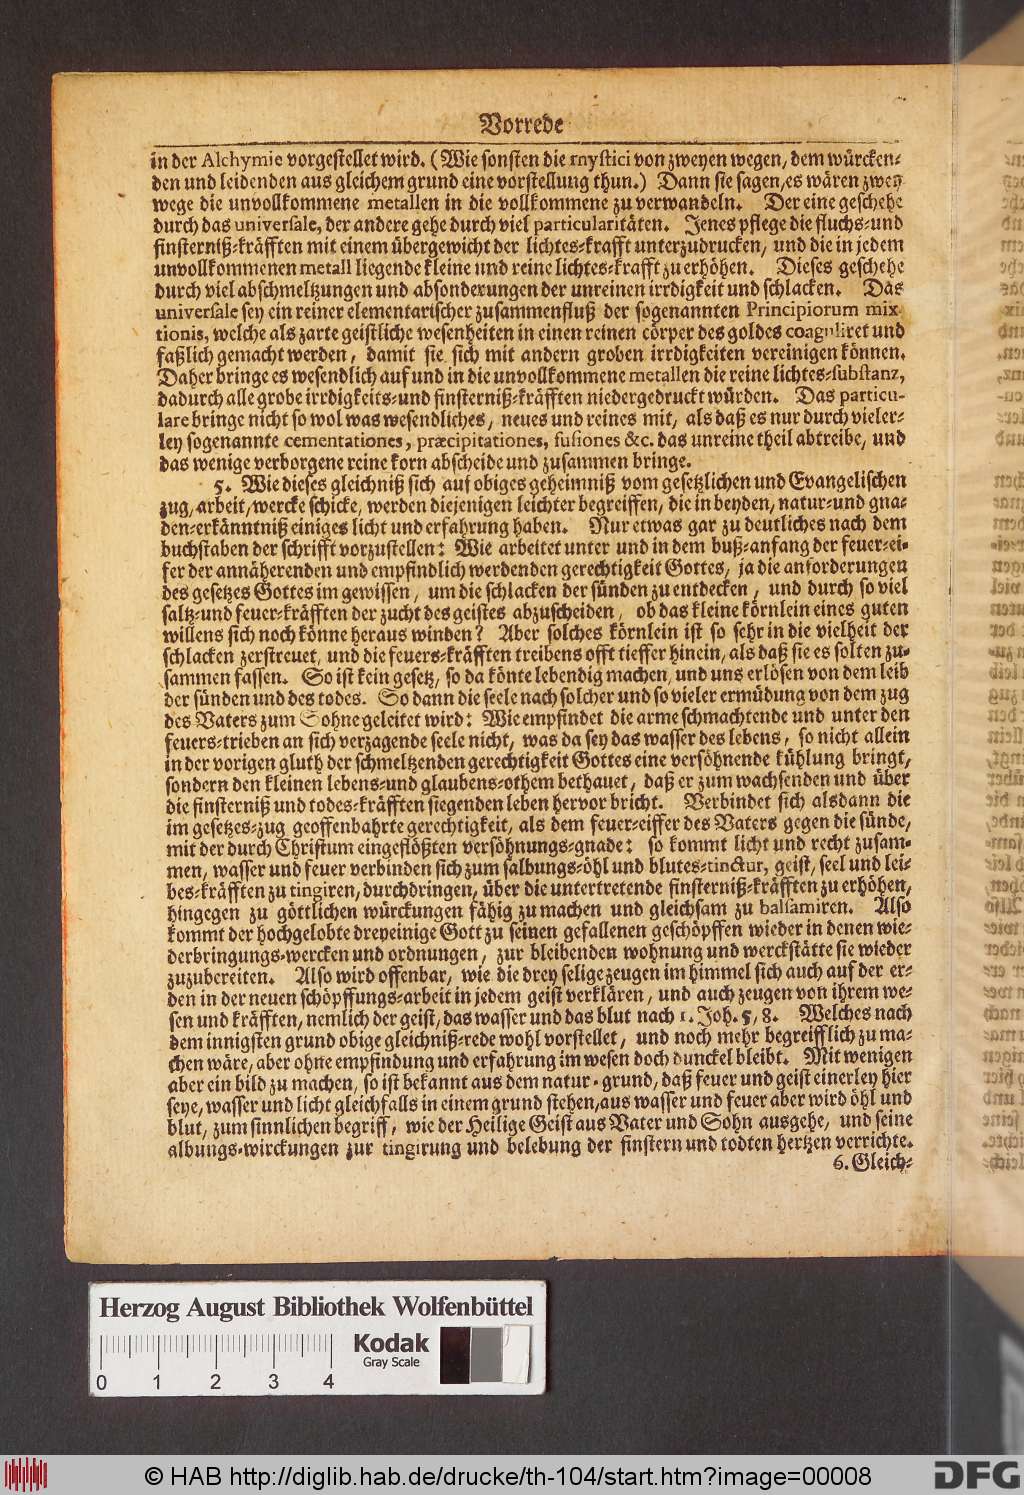 Vorrede
in der Alchymie vorgestellet wird. (Wie sonsten die mystici von zweyen wegen, dem würcken-
den und leidenden aus gleichem grund eine vorstellung thun.) Dann sie sagen, es wären zwey
wege die unvollkommene metallen in die vollkommene zu verwandeln. Der eine geschehe
durch das universale, der andere gehe durch viel particularitäten. Jenes pflege die fluchs-und
finsterniß-kräfften mit einem übergewicht der lichtes-krafft unterzudrucken, und die in jedem
unvollkommenen metall liegende kleine und reine lichtes-krafft zu erhöhen. Dieses geschehe
durch viel abschmeltzungen und absonderungen der unreinen irrdigkeit und schlacken. Das
universale sey ein reiner elementarischer zusammenfluß der sogenannten Principiorum mix-
tionis, welche als zarte geistliche wesenheiten in einen reinen cörper des goldes coaguliret und
faßlich gemacht werden, damit sie sich mit andern groben irrdigkeiten vereinigen können.
Daher bringe es wesendlich auf und in die unvollkommene metallen die reine lichtes-substanz,
dadurch alle grobe irrdigkeits-und finsterniß-kräfften niedergedruckt würden. Das particu-
lare bringe nicht so wol was wesendliches, neues und reines mit, als daß es nur durch vieler-
ley sogenannte cementationes, præcipitationes, fusiones &c. das unreine theil abtreibe, und
das wenige verborgene reine korn abscheide und zusammen bringe.
5. Wie dieses gleichniß sich auf obiges geheimniß vom gesetzlichen und Evangelischen
zug, arbeit, wercke schicke, werden diejenigen leichter begreiffen, die in beyden, natur-und gna-
den-erkänntniß einiges licht und erfahrung haben. Nur etwas gar zu deutliches nach dem
buchstaben der schrifft vorzustellen: Wie arbeitet unter und in dem buß-anfang der feuer-ei-
fer der annäherenden und empfindlich werdenden gerechtigkeit Gottes, ja die anforderungen
des gesetzes Gottes im gewissen, um die schlacken der sünden zu entdecken, und durch so viel
saltz-und feuer-kräfften der zucht des geistes abzuscheiden, ob das kleine körnlein eines guten
willens sich noch könne heraus winden? Aber solches körnlein ist so sehr in die vielheit der
schlacken zerstreuet, und die feuers-kräfften treibens offt tieffer hinein, als daß sie es solten zu-
sammen fassen. So ist kein gesetz, so da könte lebendig machen, und uns erlösen von dem leib
der sünden und des todes. So dann die seele nach solcher und so vieler ermüdung von dem zug
des Vaters zum Sohne geleitet wird: Wie empfindet die arme schmachtende und unter den
feuers-trieben an sich verzagende seele nicht, was da sey das wasser des lebens, so nicht allein
in der vorigen gluth der schmeltzenden gerechtigkeit Gottes eine versöhnende kühlung bringt,
sondern den kleinen lebens-und glaubens-othem bethauet, daß er zum wachsenden und über
die finsterniß und todes-kräfften siegenden leben hervor bricht. Verbindet sich alsdann die
im gesetzes-zug geoffenbahrte gerechtigkeit, als dem feuer-eiffer des Vaters gegen die sünde,
mit der durch Christum eingeflößten versöhnungs-gnade: so kommt licht und recht zusam-
men, wasser und feuer verbinden sich zum salbungs-öhl und blutes-tinctur, geist, seel und lei-
bes-kräfften zu tingiren, durchdringen, über die untertretende finsterniß-kräfften zu erhöhen,
hingegen zu göttlichen würckungen fähig zu machen und gleichsam zu balsamiren. Also
kommt der hochgelobte dreyeinige Gott zu seinen gefallenen geschöpffen wieder in denen wie-
derbringungs-wercken und ordnungen, zur bleibenden wohnung und werckstätte sie wieder
zuzubereiten. Also wird offenbar, wie die drey selige zeugen im himmel sich auch auf der er-
den in der neuen schöpffungs-arbeit in jedem geist verklären, und auch zeugen von ihrem we-
sen und kräfften, nemlich der geist, das wasser und das blut nach 1. Joh. 5, 8. Welches nach
dem innigsten grund obige gleichniß-rede wohl vorstellet, und noch mehr begreifflich zu ma-
chen wäre, aber ohne empfindung und erfahrung im wesen doch dunckel bleibt. Mit wenigen
aber ein bild zu machen, so ist bekannt aus dem natur-grund, daß feuer und geist einerley hier
seye, wasser und licht gleichfalls in einem grund stehen, aus wasser und feuer aber wird öhl und
blut, zum sinnlichen begriff, wie der Heilige Geist aus Vater und Sohn ausgehe, und seine
albungs-wirckungen zur tingirung und belebung der finstern und todten hertzen verrichte.
6. Gleich-
Herzog August Bibliothek Wolfenbüttel
Kodak
Gray Scale
0 1 2 3 4
© HAB http://diglib.hab.de/drucke/th-104/start.htm?image=00008
DFG